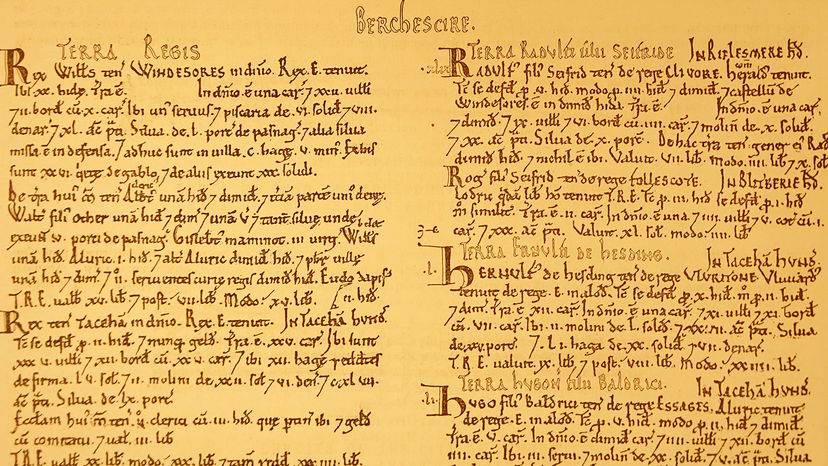 BERCHESCIRE.
TERRA REGIS
Rex Witts teñ WINDESORES in dñio. Rex. E. tenuit.
Ibi .xx. hidę. Tra .ē. In dñio. ē una car. 7 xxii. uitti
7 ii. bord cū. x. car. Ibi un seruus. 7 piscaria de. vi. solid 7 viii.
denar. 7 xl. ac p̃ti. Silua. de. l. porc̃ de pasnag. 7 alia silua
missa ē in defensa. 7 adhuc sunt in uilla. c. hagę. v. min. Ex his
sunt xxvi. quietę de gablo, 7 de aliis exeunt xxx. solidi.
De tra huj m̃ ten Albt cleric unā hid 7 dimid. 7 tcia parte uni denę.
Walt fili Other unā hid 7 dim. 7 unā v̄. 7 tant siluę unde
exeunt v. porci de pasnag. Gislebt maminot. iii. uirg. Witts
unā hid. Aluric. i. hid. 7 alt Aluric dimid hid. 7 pbr uillę
unā hid 7 dim. 7 ii. seruientes curię regis dimid hid. Eudo dapif
ii. hid.
T.R.E. ualb xv. lib. 7 post. vii. lib. Modo. xv. lib.
Rex teñ TACEHĀ in dñio. Rex. E. tenuit. IN TACEHĀ HUND.
Te se defd p̱. ii. hid. 7 nunq̃ geld. Tra. ē. xxv. car. Ibi sunt
xxxv. uitti. 7 xii. bord cū. xxv. car. 7 ibi xii. hagę reddtes
de firma. lv. sol. 7 ii. molini de. xxii. sol. 7 vi. den. 7 c.xlvii.
ac p̃ti. Silua. de. lx. porc̃.
Ecclam huj m̃ teñ. ii. clerici cū. iii. hid. que ptin ibi 7 geld
cū comitatu. 7 ual. iii. lib
T.R.E. ualb xx. lib. modo. xx. lib. 7 tam redd. xxiiii. lib.
TERRA RADULFI filii SEIFRIDE IN RIPLESMERE HD.
.xlix. RADULF fili Seifrid ten de rege CLIVORE. Herald tenuit.
Te se defd. p̱. v. hid. modo p̱. iiii. hid 7 dimid. 7 castellū de
Windesores. ē in dimid hida. Tra. ē. In dñio. ē una car.
7 dimid. 7 ix. uitti 7 vi. bord cū. iiii. car. 7 molin de. x. solid.
7 xx. ac p̃ti. Silua de. x. porc̃. De hac tra ten gener ei Rad
dimid hid. 7 nichil ē ibi. Valuit. vii. lib. modo. iiii. lib. 7 x. sol
Rog fili Seifrid ten de rege FOLLESCOTE. IN BLITBERIE HD.
Lodric qdā lib hō tenuit T.R.E. Te p̱. iii. hid se defd p̱. i. hid.
m̊ similit. Tra. ē. ii. car. In dñio. ē una. 7 iiii. uitti. 7 v. cot cū. i.
car. 7 xxx. ac p̃ti. Valuit. xl. sol. modo. iiii. lib.
TERRA ERNULFI DE HESDING. IN TACEHĀ HUND.
.l. HERNULF de hesding ten de rege
tenuit de rege. E. in alod. Te se defd. p̱. x. hid. m̊ p̱. ii. hid.
7 dim. Tra. xii. car. In dñio. ē una car. 7 xi. uitti. 7 xi. bord
cū. vii. car. Ibi. ii. molini de. l. solid. 7 xx. vii. ac p̃ti. Silua
de xxv. porc̃. 7. l. i. haga de. xx. solid. 7 vii. denar.
T.R.E. ualuit. ix. lib. 7 post. viii. lib. Modo. xxiiii. lib.
TERRA HUGON filii BALDRICI. IN TACEHĀ HUND.
.li. HUGO fili Baldrici ten de rege ESSAGES. Aluric tenuit
de rege. E. in alod. Te p̱. v. hid. modo p̱. ii. hid 7 dimid.
Tra. ē. v. car. In dñio. ē dimid car. 7 iiii. uitti. 7 xii. bord
cū. iii. car. Ibi. ē molin de. v. solid. 7 xii. ac p̃ti. Silua